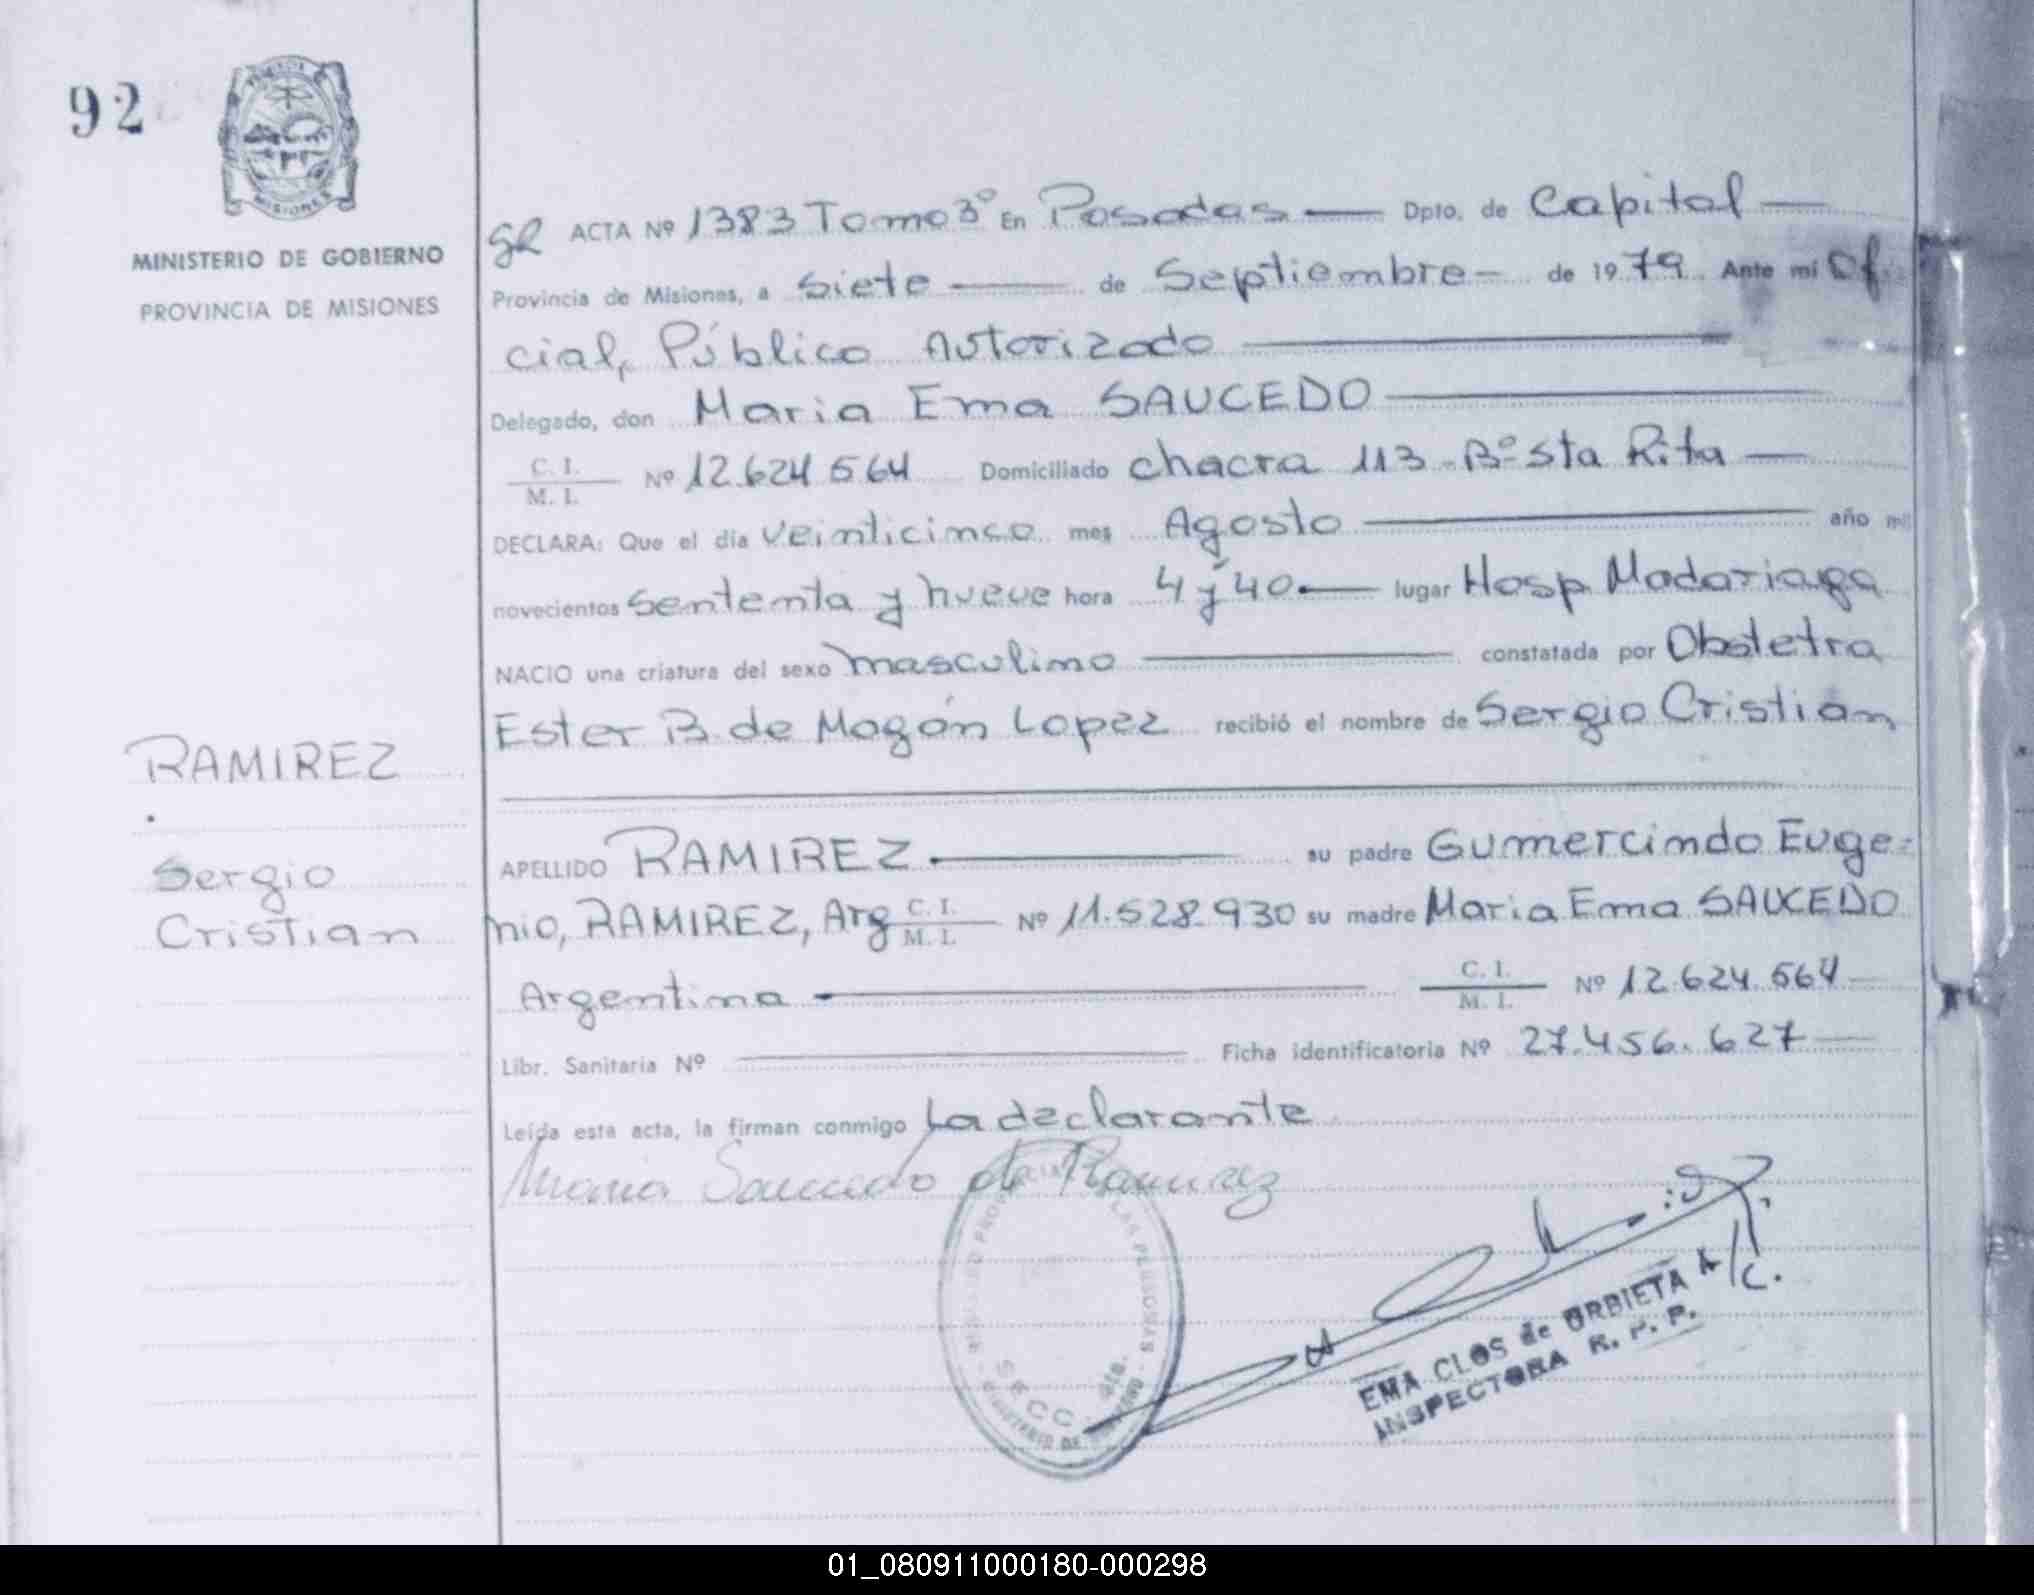 92
MISIONES
MINISTERIO DE GOBIERNO
PROVINCIA DE MISIONES
RAMIREZ
Sergio
Cristian
ACTA Nº 1383 Tomo 3º En Posadas — Dpto. de Capital —
Provincia de Misiones, a Siete — de Septiembre — de 1979 Ante mi Of
cial, Público Autorizado
Delegado, don Maria Ema SAUCEDO
C. I.
M. I. Nº 12.624.564 Domiciliado chacra 113 - Bº Sta Rita —
DECLARA: Que el día veinticinco mes Agosto — año mil
novecientos Sententa y nueve hora 4 y 40 — lugar Hosp Madariaga
NACIO una criatura del sexo masculino — constatada por Obstetra
Ester B. de Mogón Lopez recibió el nombre de Sergio Cristian
APELLIDO RAMIREZ — su padre Gumercindo Euge=
nio, RAMIREZ, Arg C. I.
M. I. Nº 11.528.930 su madre Maria Ema SAUCEDO
Argentina — C. I.
M. I. Nº 12.624.564 —
Libr. Sanitaria Nº — Ficha identificatoria Nº 27.456.627 —
Leída esta acta, la firman conmigo La declarante
Maria Saucedo de Ramirez
SECC.
EMA CLOS de ORBIETA A/C.
INSPECTORA R. P. P.
01_080911000180-000298